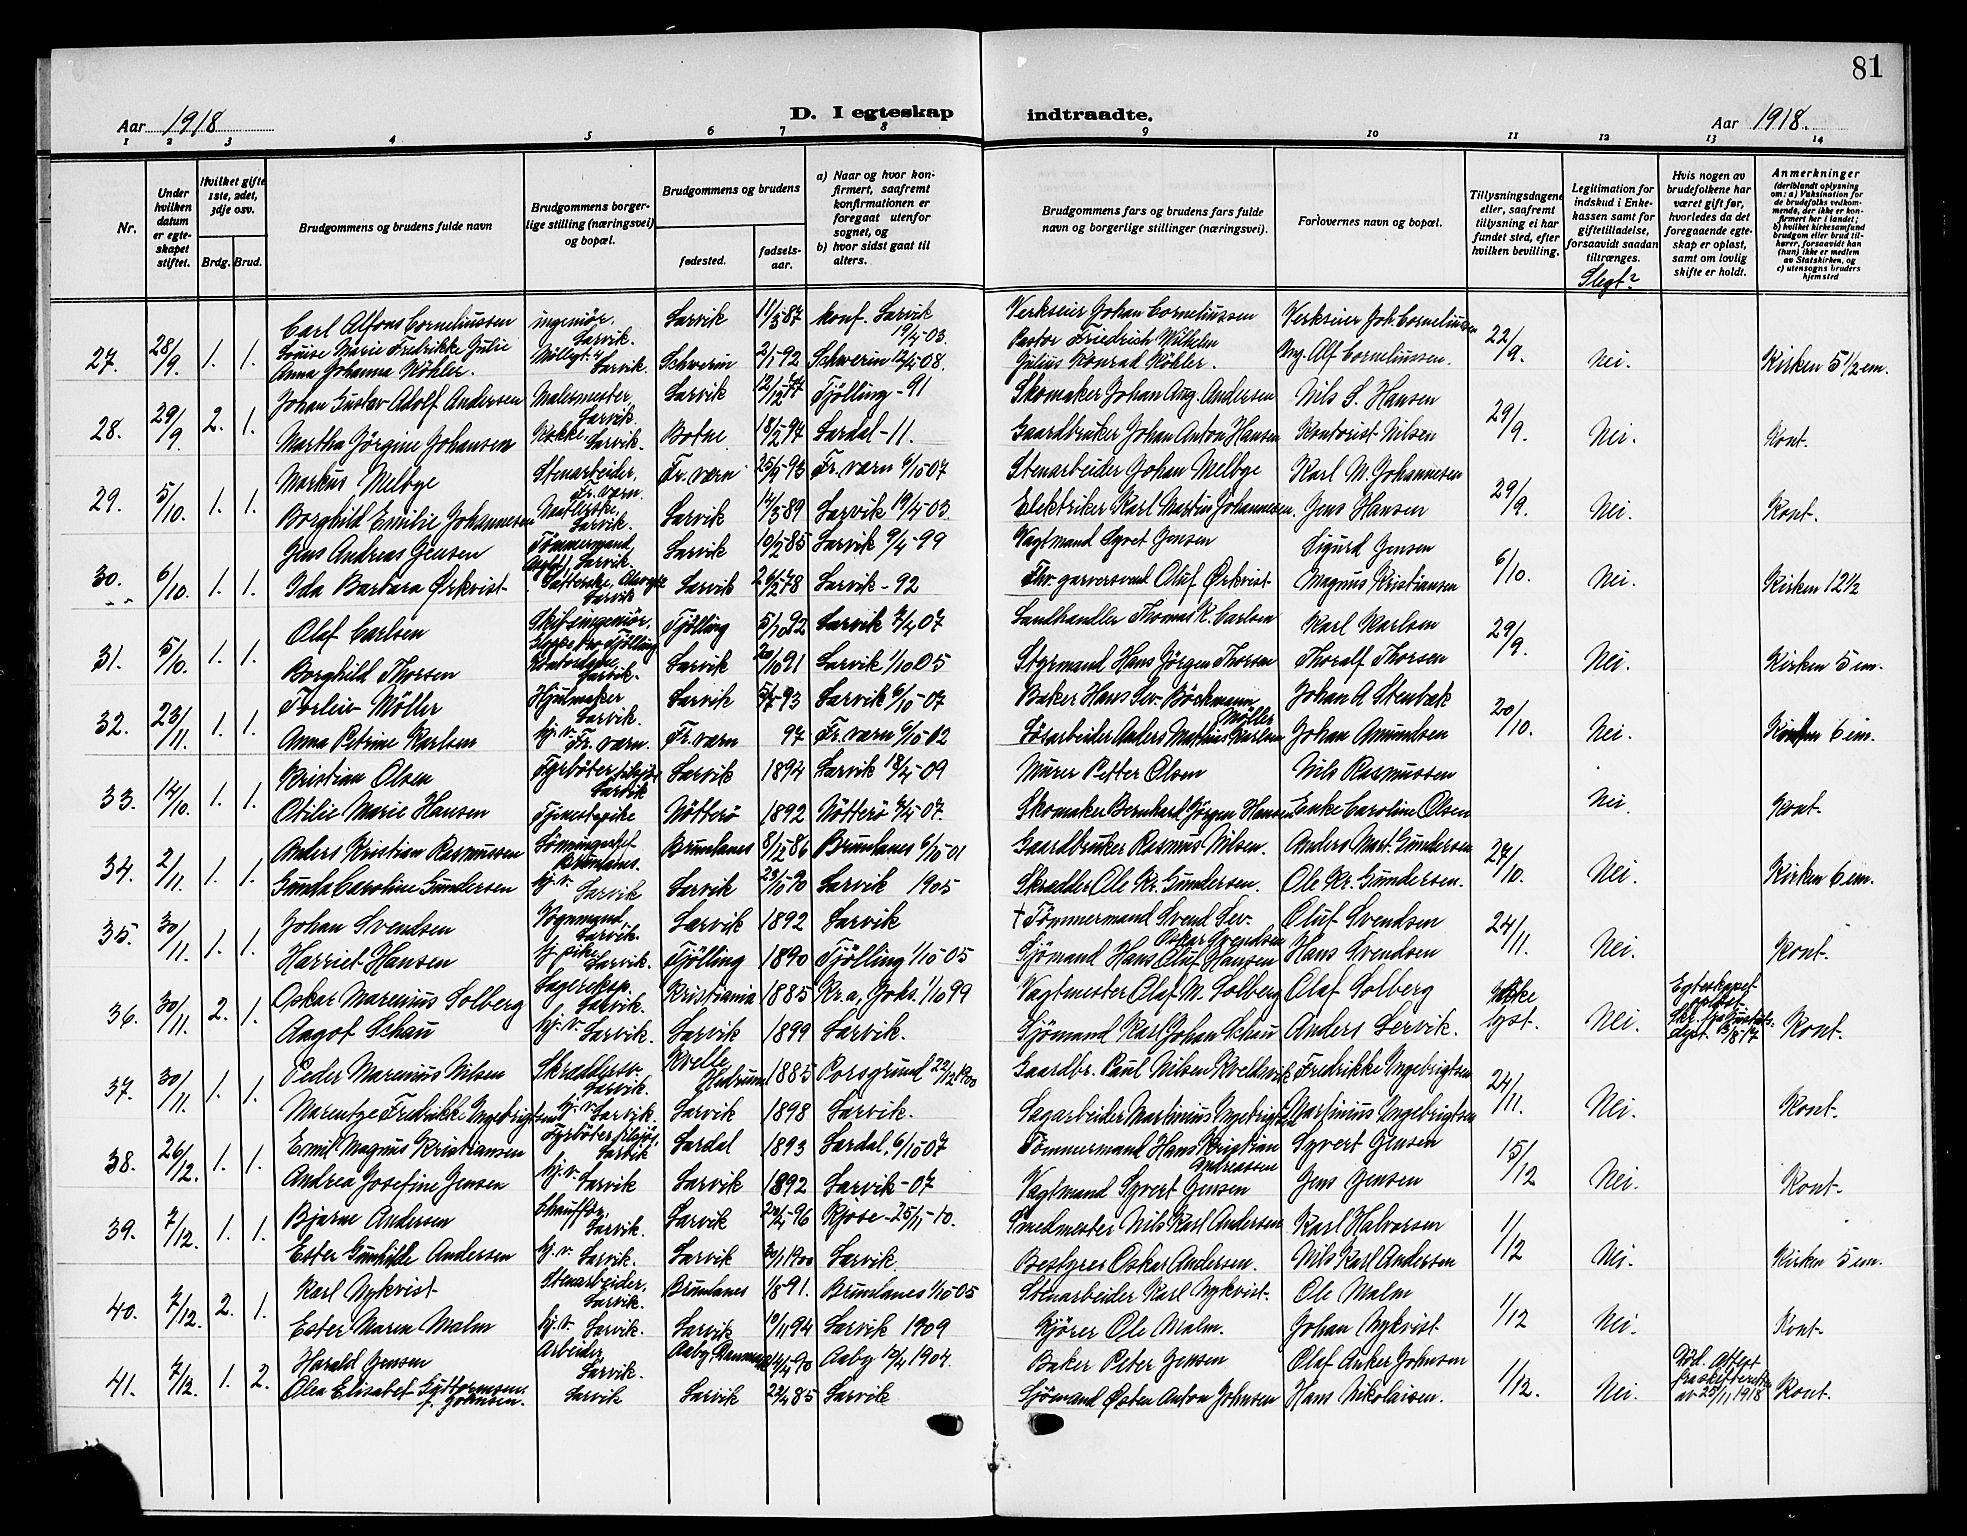 81
Aar 1918
D. I egteskap indtraadte.
Aar 1918.
1 2 3 4 5 6 7 8 9 10 11 12 13 14
Nr.
Under hvilken datum er egteskapet stiftet.
Hvilket gifte 1ste, 2det, 3dje osv.
Brdg. Brud.
Brudgommens og brudens fulde navn
Brudgommens borgerlige stilling (næringsvei) og bopæl.
Brudgommens og brudens
fødested.
fødselsaar.
a) Naar og hvor konfirmert, saafremt konfirmationen er foregaat utenfor sognet, og
b) hvor sidst gaat til alters.
Brudgommens fars og brudens fars fulde navn og borgerlige stillinger (næringsvei).
Forlovernes navn og bopæl.
Tillysningsdagene eller, saafremt tillysning ei har fundet sted, efter hvilken bevilling.
Legitimation for indskud i Enkekassen samt for giftetilladelse, forsaavidt saadan tiltrænges.
Slegt?
Hvis nogen av brudefolkene har været gift før, hvorledes da det foregaaende egteskap er opløst, samt om lovlig skifte er holdt.
Anmerkninger
(deriblandt oplysning om: a) Vaksination for de brudefolks vedkommende, der ikke er konfirmert her i landet; b) hvilket kirkesamfund brudgom eller brud tilhører, forsaavidt han (hun) ikke er medlem av Statskirken, og c) utensogns bruders hjemsted
27. 28/9 1. 1. Carl Alfons Corneliussen ingeniør, Larvik. Larvik 11/3 87 konf. Larvik 19/4-03. Verkseier Johan Corneliussen Verkseier Joh. Corneliussen 22/9. Nei. Kirken 5 1/2 em.
Louise Marie Fredrikke Julie Anna Johanna Köhler. Larvik. Schwerin 2/1-92 Schwerin 12/4-08. Pastor Friedrich Wilhelm Julius Konrad Köhler. Ing. Alf Corneliussen.
28. 29/9 2. 1. Johan Gustav Adolf Andersen Malermester, Larvik. Larvik 12/12-77 Tjölling-91 Skomaker Johan Aug. Andersen Nils S. Hansen 29/9. Nei. Kont.
Martha Jörgine Johansen Kokke, Larvik. Botne 18/2-94 Lardal-11. Gaardbruker Johan Anton Hansen Kontorist Nilsen
29. 5/10. 1. 1. Markus Melbye Stenarbeider, Fr. værn. Fr. værn 25/5-93 Fr. værn 6/10-07 Stenarbeider Johan Melbye Karl M. Johannesen 29/9. Nei. Kont.
Borghild Emilie Johannesen Larvik. Larvik 14/3-89 Larvik 19/4-03. Elektriker Karl Martius Johannesen. Jens Hansen
30. 6/10. 1. 1. Jens Andreas Jensen Tömmermand, Larvik. Larvik 10/2-85 Larvik 9/4-99 Vagtmand Syvet Jensen Sigurd Jensen 6/10. Nei. Kirken 12 1/2
Ida Barbara Ørkvist Larvik Larvik 26/2-78 Larvik-92 Fhv. garversvend Oluf Ørkvist Magnus Kristiansen
31. 5/10. 1. 1. Olaf Carlsen Skibsingeniør, Tjölling Tjölling 5/10 92 Larvik 7/4 07 Landhandler Thomas K. Carlsen Karl Karlsen 29/9. Nei. Kirken 5 em.
Borghild Thorsen Larvik. Larvik 20/10 91 Larvik 1/10 05 Styrmand Hans Jörgen Thorsen Thoralf Thorsen
32. 23/11. 1. 1. Torleiv Möller Hjulmaker Larvik. Larvik 5/7-93 Larvik 6/10-07 Baker Hans Sev. Böckmann Möller Johan A Stenbæk 20/10. Nei. Kirken 6 em.
Anna Petrine Karlsen hj. v. Fr. værn. Fr. værn 97 Fr. værn 6/10-02 Lösarbeider Anders Mathius Karlsen Johan Amundsen
33. 14/10. 1. 1. Kristian Olsen Fyrböter tilsjös Larvik Larvik 1894 Larvik 18/4-09 Murer Petter Olsen Nils Rasmussen Nei. Kont.
Otilie Marie Hansen Tjenestepike Nötterö 1892 Nötterö 7/4-07. Skomaker Bernhard Jörgen Hansen Enke Caroline Olsen
34. 2/11. 1. 1. Anders Kristian Rasmussen Brunlanes. Brunlanes 8/12-86 Brunlanes 6/10-01 Gaardbruker Rasmus Nilsen. Anders Mart. Gundersen 27/10. Nei. Kirken 6 em.
Gunda Caroline Gundersen hj. v. Larvik Larvik 23/10-90 Larvik 1905 Skrædder Ole Kr. Gundersen. Ole Kr. Gundersen.
35. 30/11. 1. 1. Johan Svendsen Vognmand, Larvik. Larvik 1892 Larvik † Tömmermand Svend Sev. Oskar Svendsen Oluf Svendsen 24/11. Nei. Kont.
Harriet Hansen hj. pike Larvik. Tjölling 1890 Tjölling 1/10-05 Sjömand Hans Oluf Hansen Hans Svendsen
36. 30/11. 2. 1. Oskar Marenius Solberg Lagereksp. Larvik. Kristiania 1885 Kr.a, Joks. 1/10 99 Vagtmester Olaf M. Solberg Olaf Solberg Ikke lyst. Nei. Egteskapet opløst Kont.
Aagot Schau hj. v. Larvik. Larvik 1899 Larvik. Sjömand Karl Johan Schau Anders Lervik.
37. 30/11. 1. 1. Peder Marenius Nilsen Skræddersv. Larvik. Kvelle Hedrum 1885 Porsgrund 22/12 1900 Gaardbr. Paul Nilsen Kvelde Fredrikke Ingebrigtsen 24/11. Nei. Kont.
Marentze Fredrikke Ingebrigtsen hj. v. Larvik. Larvik 1898 Larvik. Sagarbeider Martinius Ingebrigtsen Martinius Ingebrigtsen
38. 26/12. 1. 1. Emil Magnus Kristiansen Fyrböter tilsjös, Larvik Lardal 1893 Lardal, 6/10-07 Tömmermand Hans Kristian Andreassen Syvert Jensen 15/12 Nei. Kont.
Andrea Josefine Jensen hj. v. Larvik Larvik 1892 Larvik-07 Vagtmand Syvert Jensen Jens Jensen
39. 7/12. 1. 1. Bjarne Andersen Chauffør, Larvik. Larvik 20/4-96 Kjose-25/11-10. Smedmester Nils Karl Andersen Karl Halvorsen 1/12 Nei. Kirken 5 em.
Ester Gunhilde Andersen hj. v. Larvik. Larvik 30/1 1900 Larvik. Bestyrer Oskar Andersen. Nils Karl Andersen
40. 7/12. 2. 1. Karl Nykvist Stenarbeider, Larvik. Brunlanes 1/8-91. Brunlanes 1/10-05 Stenarbeider Karl Nykvist. Ole Malm 1/12 Nei. Kont.
Ester Maren Malm hj. v. Larvik. Larvik 10/11 94 Larvik 1909 Kjörer Ole Malm. Johan Nykvist
41. 7/12. 1. 2. Harald Jensen Arbeider Larvik. Aaby, Danmark 14/4-90 Aaby 10/4 1904. Baker Peter Jensen Olaf Anker Johnsen 1/12. Nei. Vid. Attest fra skifteretten av 25/11 1918 Kont.
Olea Elisabet Guttormsen f. Johnsen. Larvik Larvik 22/4 85 Larvik Sjömand Østen Anton Johnsen Hans Nikolaisen.